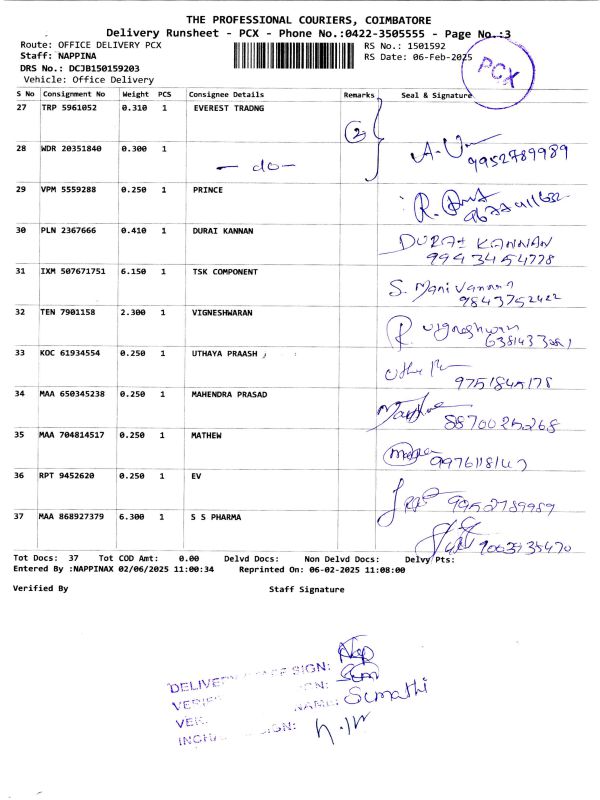 THE PROFESSIONAL COURIERS, COIMBATORE
Delivery Runsheet - PCX - Phone No.:0422-3505555 - Page No.:3
Route: OFFICE DELIVERY PCX
RS No.: 1501592
Staff: NAPPINA
RS Date: 06-Feb-2025
DRS No.: DCJB150159203
Vehicle: Office Delivery
PCX
S No Consignment No Weight PCS Consignee Details Remarks Seal & Signature
27 TRP 5961052 0.310 1 EVEREST TRADNG
2
28 WDR 20351840 0.300 1
- do -
9952789989
29 VPM 5559288 0.250 1 PRINCE
30 PLN 2367666 0.410 1 DURAI KANNAN
DURAI KANNAN
9943454778
31 IXM 507671751 6.150 1 TSK COMPONENT
S. Manivannan
9843752422
32 TEN 7901158 2.300 1 VIGNESHWARAN
R. Vigneshwaran
33 KOC 61934554 0.250 1 UTHAYA PRAASH
9751845178
34 MAA 650345238 0.250 1 MAHENDRA PRASAD
8870025268
35 MAA 704814517 0.250 1 MATHEW
36 RPT 9452620 0.250 1 EV
9952789989
37 MAA 868927379 6.300 1 S S PHARMA
Tot Docs: 37 Tot COD Amt: 0.00 Delvd Docs: Non Delvd Docs: Delvy Pts:
Entered By :NAPPINAX 02/06/2025 11:00:34 Reprinted On: 06-02-2025 11:08:00
Verified By Staff Signature
DELIVERY SIGN:
NAME: Sumathi
SIGN: